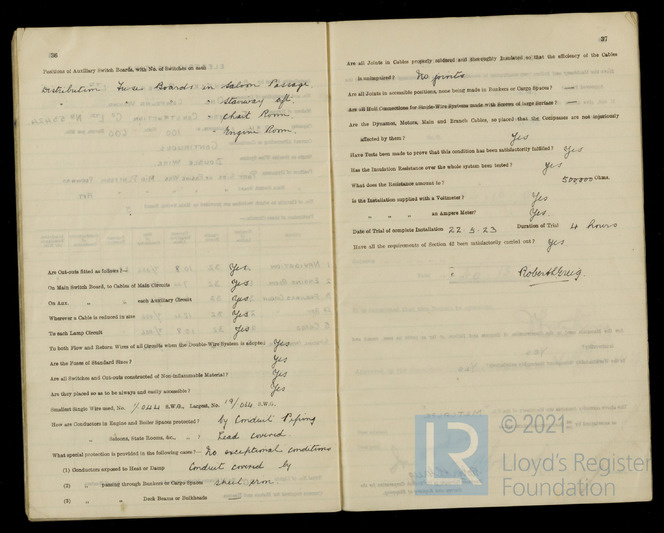 36
Positions of Auxiliary Switch Boards, with No. of Switches on each
Distribution Fuse Boards in Saloon Passage.
" " " " Stairway aft.
" " " " Chart Room.
" " " " Engine Room.
Are Cut-outs fitted as follows?—
On Main Switch Board, to Cables of Main Circuits Yes.
On Aux. " " each Auxiliary Circuit Yes
Wherever a Cable is reduced in size Yes
To each Lamp Circuit Yes
To both Flow and Return Wires of all Circuits when the Double-Wire System is adopted Yes
Are the Fuses of Standard Sizes? Yes
Are all Switches and Cut-outs constructed of Non-inflammable Material? Yes
Are they placed so as to be always and easily accessible? Yes
Smallest Single Wire used, No. 1/.044 S.W.G., Largest, No. 19/.064 S.W.G.
How are Conductors in Engine and Boiler Spaces protected? by Conduit Piping
" Saloons, State Rooms, &c., " ? Lead covered
What special protection is provided in the following cases?— No exceptional conditions
(1) Conductors exposed to Heat or Damp Conduit covered by
(2) " passing through Bunkers or Cargo Spaces sheet iron
(3) " " Deck Beams or Bulkheads
37
Are all Joints in Cables properly soldered and thoroughly insulated so that the efficiency of the Cables
is unimpaired? No joints
Are all Joints in accessible positions, none being made in Bunkers or Cargo Spaces? —
Are all Hull Connections for Single-Wire Systems made with Screws of large Surface? —
Are the Dynamos, Motors, Main and Branch Cables, so placed that the Compasses are not injuriously
affected by them? Yes
Have Tests been made to prove that this condition has been satisfactorily fulfilled? Yes
Has the Insulation Resistance over the whole system been tested? Yes
What does the Resistance amount to? 500000 Ohms.
Is the Installation supplied with a Voltmeter? Yes
" " " an Ampere Meter? Yes.
Date of Trial of complete Installation 22.5.23 Duration of Trial 4 hours
Have all the requirements of Section 42 been satisfactorily carried out? Yes.
Robert Greig.
© 2021
LR
Lloyd's Register
Foundation